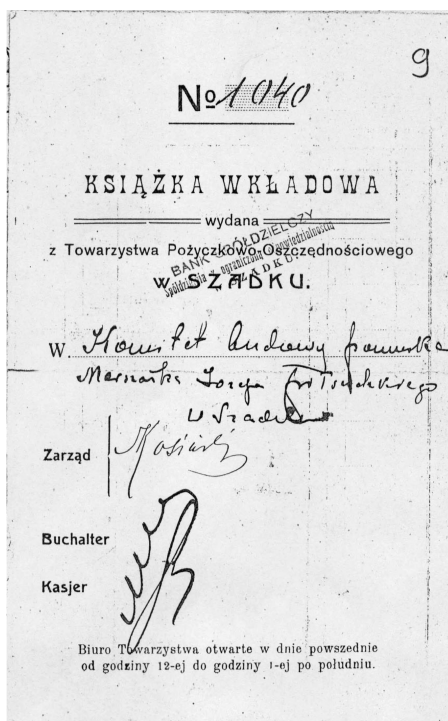 9
No 1040
KSIĄŻKA WKŁADOWA
wydana
z Towarzystwa Pożyczkowo-Oszczędnościowego
BANK SPÓŁDZIELCZY
Spółdzielnia z ograniczoną odpowiedzialnością
W SZADKU
w SZADKU.
W. Komitet budowy pomnika
Marszałka Józefa Piłsudskiego
w Szadku
Zarząd
Buchalter
Kasjer
Biuro Towarzystwa otwarte w dnie powszednie
od godziny 12-ej do godziny 1-ej po południu.